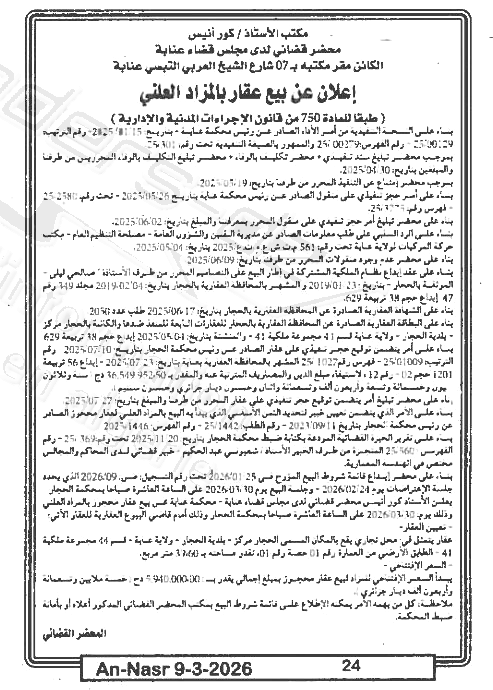 مكتب الأستاذ / كور أنيس
محضر قضائي لدى مجلس قضاء عنابة
الكائن مقر مكتبه بـ 07 شارع الشيخ العربي التبسي عنابة
إعلان عن بيع عقار بالمزاد العلني
( طبقا للمادة 750 من قانون الإجراءات المدنية والإدارية )
بناء على النسخة التنفيذية من أمر الأداء الصادر عن رئيس محكمة عنابة - بتاريخ: رقم الترتيب
والممهور بالصيغة التنفيذية تحت رقم: 25/301
بموجب محضر تبليغ سند تنفيذي + محضر تكليف بالوفاء + محضر تبليغ التكليف بالوفاء المحررين من طرفنا
والمبلغين بتاريخ: 2025/04/30
بموجب محضر إمتناع عن التنفيذ المحرر من طرفنا بتاريخ:
بناء على أمر حجز تنفيذي على منقول الصادر عن رئيس محكمة عنابة بتاريخ 2025/05/26 - تحت رقم:
- فهرس رقم:
بناء على محضر تبليغ أمر حجز تنفيذي على منقول المحرر بمعرفتنا والمبلغ بتاريخ: 2025/06/02
بناء على الرد السلبي على طلب معلومات الصادر عن مديرية التقنين والشؤون العامة - مصلحة التنظيم العام - مكتب
حركة المركبات لولاية عنابة تحت رقم: 561 بتاريخ: 2025/05/04
بناء على محضر عدم وجود منقولات المحرر من طرفنا بتاريخ: 2025/06/09
بناء على عقد إيداع نظام الملكية المشتركة في إطار البيع على التصاميم المحرر من طرف الأستاذة صالحي ليلى -
الموثقة بالحجار - بتاريخ: 2019/01/23 و المشهر بالمحافظة العقارية بالحجار بتاريخ: 2019/02/04 مجلد 349 رقم
47 إيداع حجم 38 تربيعة 629
بناء على الشهادة العقارية الصادرة عن المحافظة العقارية بالحجار بتاريخ: 2025/06/17 طلب عدد 2050
بناء على البطاقة العقارية الصادرة عن المحافظة العقارية بالحجار للعقارات التابعة للمنفذ ضدها والكائنة بالحجار مركز
- بلدية الحجار - ولاية عنابة قسم 41 مجموعة ملكية 41 - والمنشئة بتاريخ: إيداع حجم 38 تربيعة 629
بناء على أمر يتضمن توقيع حجز تنفيذي على عقار الصادر عن رئيس محكمة الحجار بتاريخ: 2025/07/10 - رقم
الترتيب 25/01009 - فهرس رقم: 25/1027 المشهر بالمحافظة العقارية بعنابة بتاريخ: 2025/07/23 - إيداع 56 تربيعة
1201 حجم 02 - رقم 12، لاستيفاء مبلغ الدين والمصاريف المترتبة عنه والمقدرة بـ 36.549.952,50 دج ستة وثلاثون
مليون وخمسمائة وتسعة وأربعون ألف وتسعمائة واثنان وخمسون دينار جزائري وخمسون سنتيم
بناء على محضر تبليغ أمر يتضمن توقيع حجز تنفيذي على عقار المحرر من طرفنا والمبلغ بتاريخ: 2025/07/27
بناء على الأمر الذي يتضمن تعيين خبير لتحديد الثمن الأساسي الذي يبدأ به البيع بالمزاد العلني لعقار محجوز الصادر
عن رئيس محكمة الحجار بتاريخ - رقم الطلب: 25/1442 - رقم الفهرس: 25/1446
بناء على تقرير الخبرة القضائية المودعة بكتابة ضبط محكمة الحجار بتاريخ: 2025/11/20 تحت رقم: 25/369 - رقم
الفهرس: المنجزة من طرف الخبير الأستاذ شعبوبي عبد الحكيم - خبير قضائي لدى المحاكم والمجالس
مختص في الهندسة المعمارية
بناء على محضر إيداع قائمة شروط البيع المؤرخ في 2026/01/25 تحت رقم التسجيل: 2026/09 الذي يحدد
جلسة الإعتراضات يوم 2026/02/24 - وجلسة البيع يوم 2026/03/30 على الساعة العاشرة صباحا بمحكمة الحجار
يعلن الأستاذ كور أنيس محضر قضائي لدى مجلس قضاء عنابة - محكمة عنابة عن بيع عقار محجوز بالمزاد العلني
وذلك يوم 2026/03/30 على الساعة العاشرة صباحا بمحكمة الحجار وذلك أمام قاضي البيوع العقارية للعقار الآتي
- تعيين العقار -
عقار يتمثل في: محل تجاري يقع بالمكان المسمى الحجار مركز - بلدية الحجار - ولاية عنابة - قسم 44 مجموعة ملكية
41 - الطابق الأرضي من العمارة رقم 01 حصة رقم 01، تقدر مساحته بـ متر مربع
- السعر الإفتتاحي -
يبدأ السعر الإفتتاحي للمزاد لبيع عقار محجوز بمبلغ إجمالي يقدر بـ 5.940.000.00 دج: خمسة ملايين وتسعمائة
وأربعون ألف دينار جزائري
ملاحظة: كل من يهمه الأمر يمكنه الإطلاع على قائمة شروط البيع بمكتب المحضر القضائي المذكور أعلاه أو بأمانة
ضبط المحكمة.
المحضر القضائي
An-Nasr 9-3-2026
24